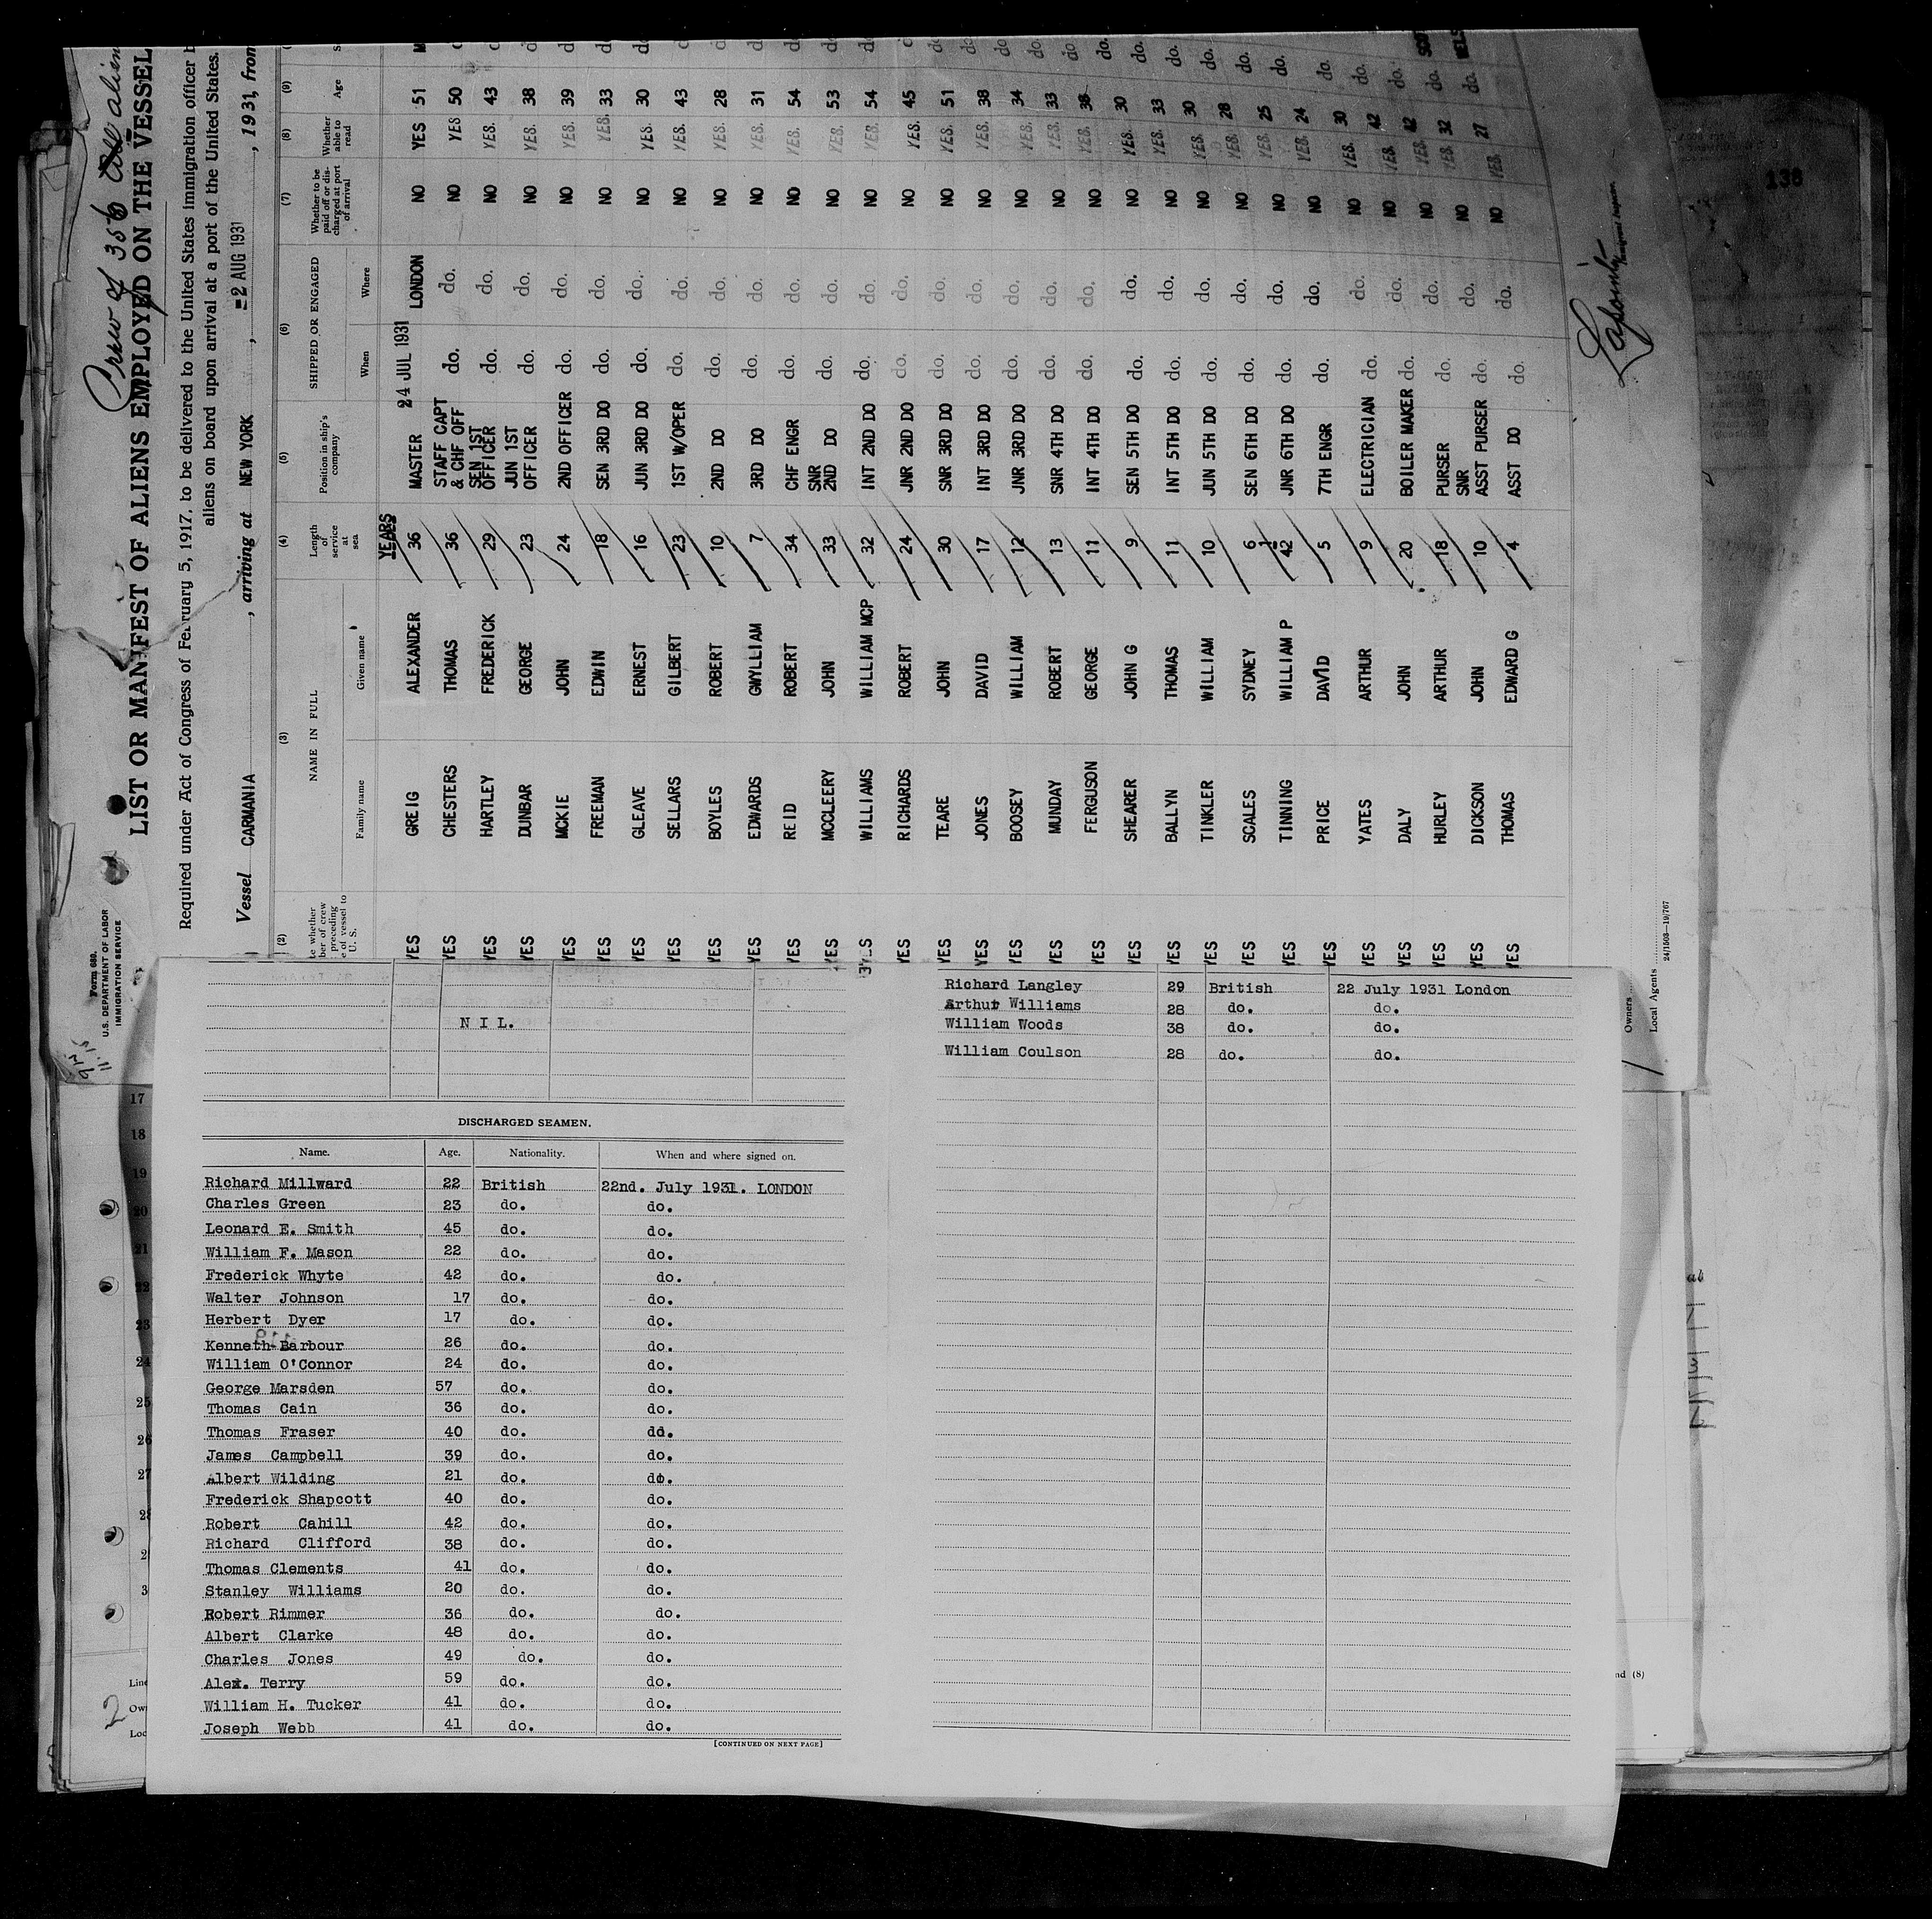 Crew of 356 All aliens
Form 680.
U.S. DEPARTMENT OF LABOR
IMMIGRATION SERVICE
LIST OR MANIFEST OF ALIENS EMPLOYED ON THE VESSEL
Required under Act of Congress of February 5, 1917, to be delivered to the United States immigration officer b
aliens on board upon arrival at a port of the United States.
Vessel CARMANIA, arriving at NEW YORK, =2 AUG 1931, 1931, from
(2) (3) (4) (5) (6) (7) (8) (9)
NAME IN FULL SHIPPED OR ENGAGED
te whether ber of crew preceding e of vessel to U. S. Family name Given name Length of service at sea Position in ship's company When Where Whether to be paid off or discharged at port of arrival Whether able to read Age S
YEARS
YES GREIG ALEXANDER 36 MASTER 24 JUL 1931 LONDON NO YES 51 M
YES CHESTERS THOMAS 36 STAFF CAPT & CHF OFF do. do. NO YES 50
YES HARTLEY FREDERICK 29 SEN 1ST OFFICER do. do. NO YES. 43
YES DUNBAR GEORGE 23 JUN 1ST OFFICER do. do. NO YES. 38
YES MCKIE JOHN 24 2ND OFFICER do. do. NO YES. 39
YES FREEMAN EDWIN 18 SEN 3RD DO do. do. NO YES. 33
YES GLEAVE ERNEST 16 JUN 3RD DO do. do. NO YES. 30
YES SELLARS GILBERT 23 1ST W/OPER do. do. NO YES. 43
YES BOYLES ROBERT 10 2ND DO do. do. NO YES. 28
YES EDWARDS GWYLLIAM 7 3RD DO do. do. NO YES. 31
YES REID ROBERT 34 CHF ENGR do. do. NO YES. 54
YES MCCLEERY JOHN 33 SNR 2ND DO do. do. NO YES. 53
YES WILLIAMS WILLIAM MCP 32 INT 2ND DO do. do. NO YES. 54
YES RICHARDS ROBERT 24 JNR 2ND DO do. do. NO YES. 45
YES TEARE JOHN 30 SNR 3RD DO do. do. NO YES. 51 do.
YES JONES DAVID 17 INT 3RD DO do. do. NO YES. 38 do.
YES BOOSEY WILLIAM 12 JNR 3RD DO do. do. NO YES. 34 do.
YES MUNDAY ROBERT 13 SNR 4TH DO do. do. NO YES. 33 do.
YES FERGUSON GEORGE 11 INT 4TH DO do. do. NO YES. 38 do.
YES SHEARER JOHN G 9 SEN 5TH DO do. do. NO YES. 30 do.
YES BALLYN THOMAS 11 INT 5TH DO do. do. NO YES. 33 do.
YES TINKLER WILLIAM 10 JUN 5TH DO do. do. NO YES. 30 do.
YES SCALES SYDNEY 6 SEN 6TH DO do. do. NO YES. 28 do.
YES TINNING WILLIAM P JNR 6TH DO do. do. NO YES. 25 do.
YES PRICE DAVID 5 7TH ENGR do. do. NO YES. 24 do.
YES YATES ARTHUR 9 ELECTRICIAN do. do. NO YES. 30 do.
YES DALY JOHN 20 BOILER MAKER do. do. NO YES. 42 do.
YES HURLEY ARTHUR 18 PURSER do. do. NO YES. 42 do.
YES DICKSON JOHN 10 SNR ASST PURSER do. do. NO YES. 32 do.
YES THOMAS EDWARD G 4 ASST DO do. do. NO YES. 27 do.
Owners
Local Agents
24/1503—19/767
138
N I L.
DISCHARGED SEAMEN.
Name. Age. Nationality. When and where signed on.
Richard Millward 22 British 22nd. July 1931. LONDON
Charles Green 23 do. do.
Leonard E. Smith 45 do. do.
William F. Mason 22 do. do.
Frederick Whyte 42 do. do.
Walter Johnson 17 do. do.
Herbert Dyer 17 do. do.
Kenneth Barbour 26 do. do.
William O'Connor 24 do. do.
George Marsden 57 do. do.
Thomas Cain 36 do. do.
Thomas Fraser 40 do. do.
James Campbell 39 do. do.
Albert Wilding 21 do. do.
Frederick Shapcott 40 do. do.
Robert Cahill 42 do. do.
Richard Clifford 38 do. do.
Thomas Clements 41 do. do.
Stanley Williams 20 do. do.
Robert Rimmer 36 do. do.
Albert Clarke 48 do. do.
Charles Jones 49 do. do.
Alex. Terry 59 do. do.
William H. Tucker 41 do. do.
Joseph Webb 41 do. do.
[CONTINUED ON NEXT PAGE]
Richard Langley 29 British 22 July 1931 London
Arthur Williams 28 do. do.
William Woods 38 do. do.
William Coulson 28 do. do.
17
18
19
20
21
22
23
24
25
26
27
2
nd (8)